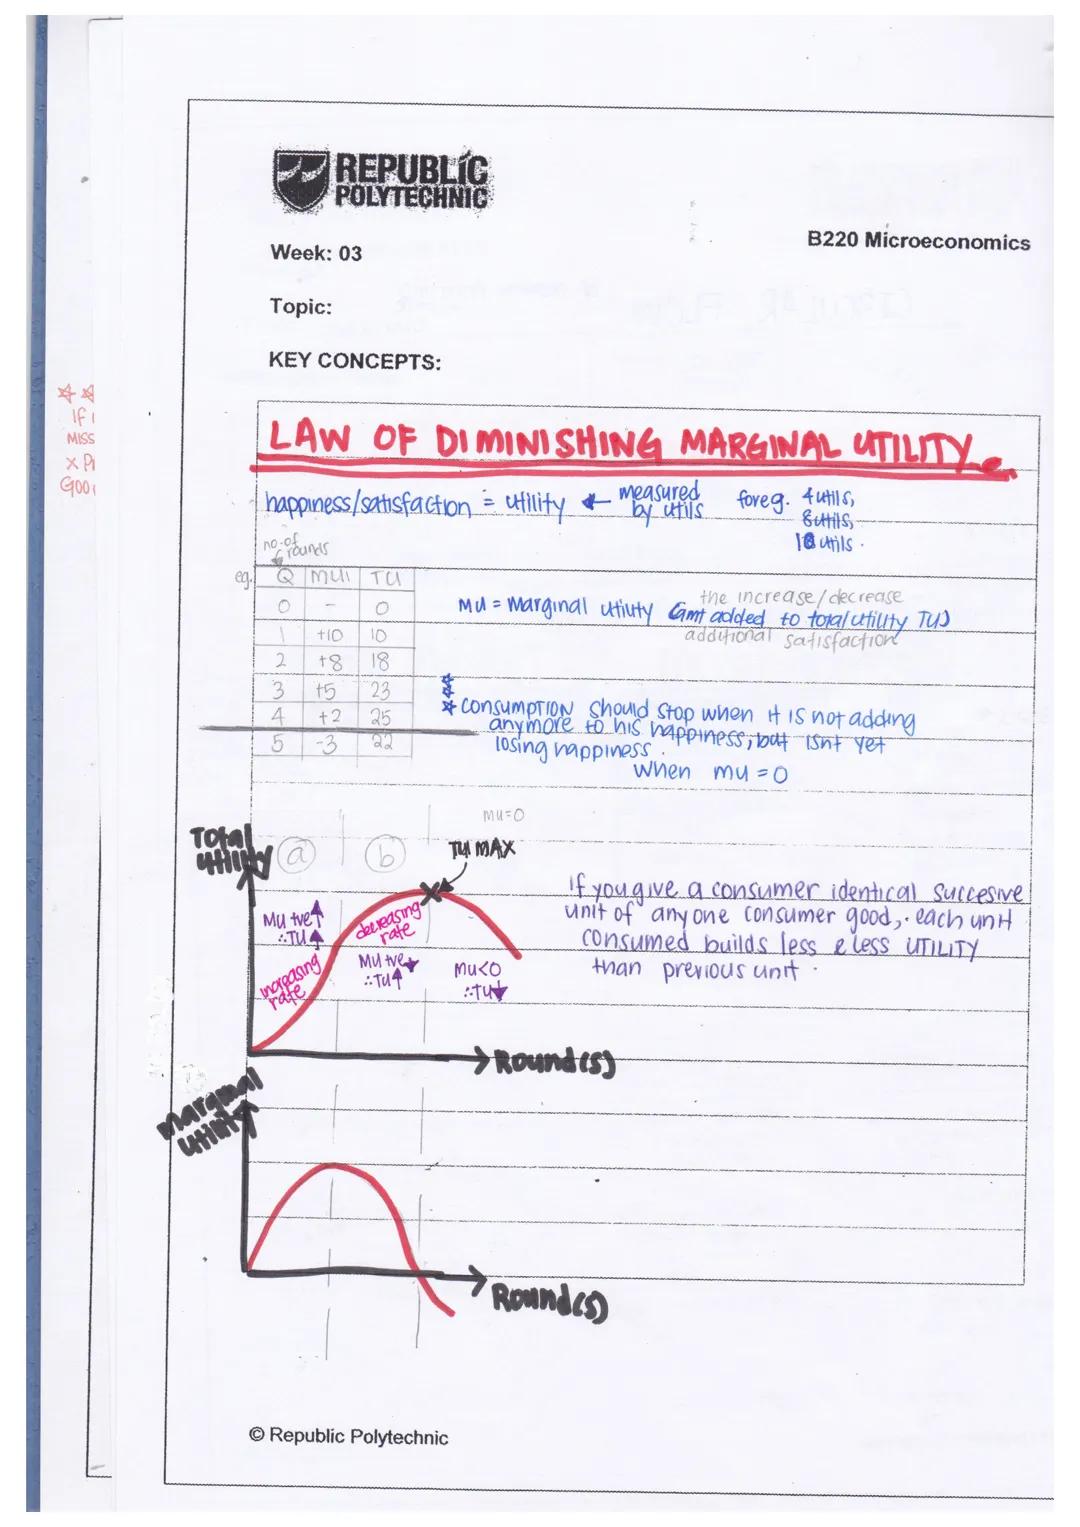 REPUBLIC
POLYTECHNIC
B220 Microeconomics
Week: 03
Topic:
KEY CONCEPTS:
If
MISS
GOO
LAW OF DIMINISHING MARGINAL UTILITY
happiness/satisfaction = utility ← measured by utils for eg. 4 utils,
8 utils,
10 utils.
no. of rounds
eg. Q MU TU
0 - 0
1 +10 10
2 +8 18
3 +5 23
4 +2 25
5 -3 22
the increase/decrease
MU = Marginal utility (amt added to total utility TU)
additional satisfaction
* CONSUMPTION should stop when it is not adding
anymore to his happiness, but isnt yet
losing happiness.
When mu = 0
MU=0
Total utility
(a) (b) TU MAX
MU +ve↑
∴TU↑
increasing rate
decreasing rate
MU +ve↓
∴TU↑
MU<0
∴TU↓
If you give a consumer identical succesive
unit of any one consumer good, each unit
consumed builds less & less UTILITY
than previous unit.
Round(s)
marginal utility
Round(s)
© Republic Polytechnic